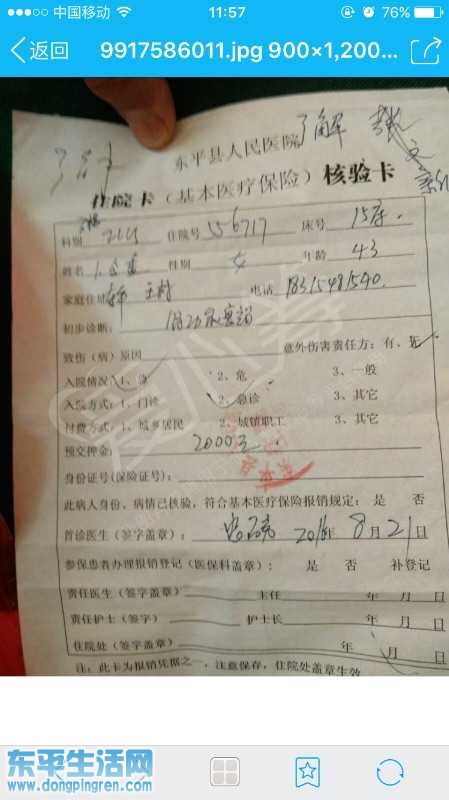 中国移动
11:57
76%
返回
9917586011.jpg 900×1,200...
了解
东平县人民医院
住院卡（基本医疗保险）核验卡
科别 住院号 556717 床号 15床
姓名 性别 女 年龄 43
家庭住址 王村 电话 18315481590
初步诊断：
致伤（病）原因 意外伤害责任方：有、无
入院情况：1、急 2、危 3、一般
入院方式：1、门诊 2、急诊 3、其它
付费方式：1、城乡居民 2、城镇职工 3、其它
预交押金： 2000元
身份证号(保险证号)：
此病人身份、病情已核验，符合基本医疗保险报销规定： 是 否
首诊医生（签字盖章）： 2016年 8月21日
参保患者办理报销登记（医保科盖章）： 是 否 补登记
责任医生（签字盖章） 主任 年 月 日
责任护士（签字） 护士长 年 月 日
住院处（签字盖章） 年 月 日
注：此卡为报销凭据之一，注意保存，住院处盖章生效
爱心筹
东平生活网
www.dongpingren.com